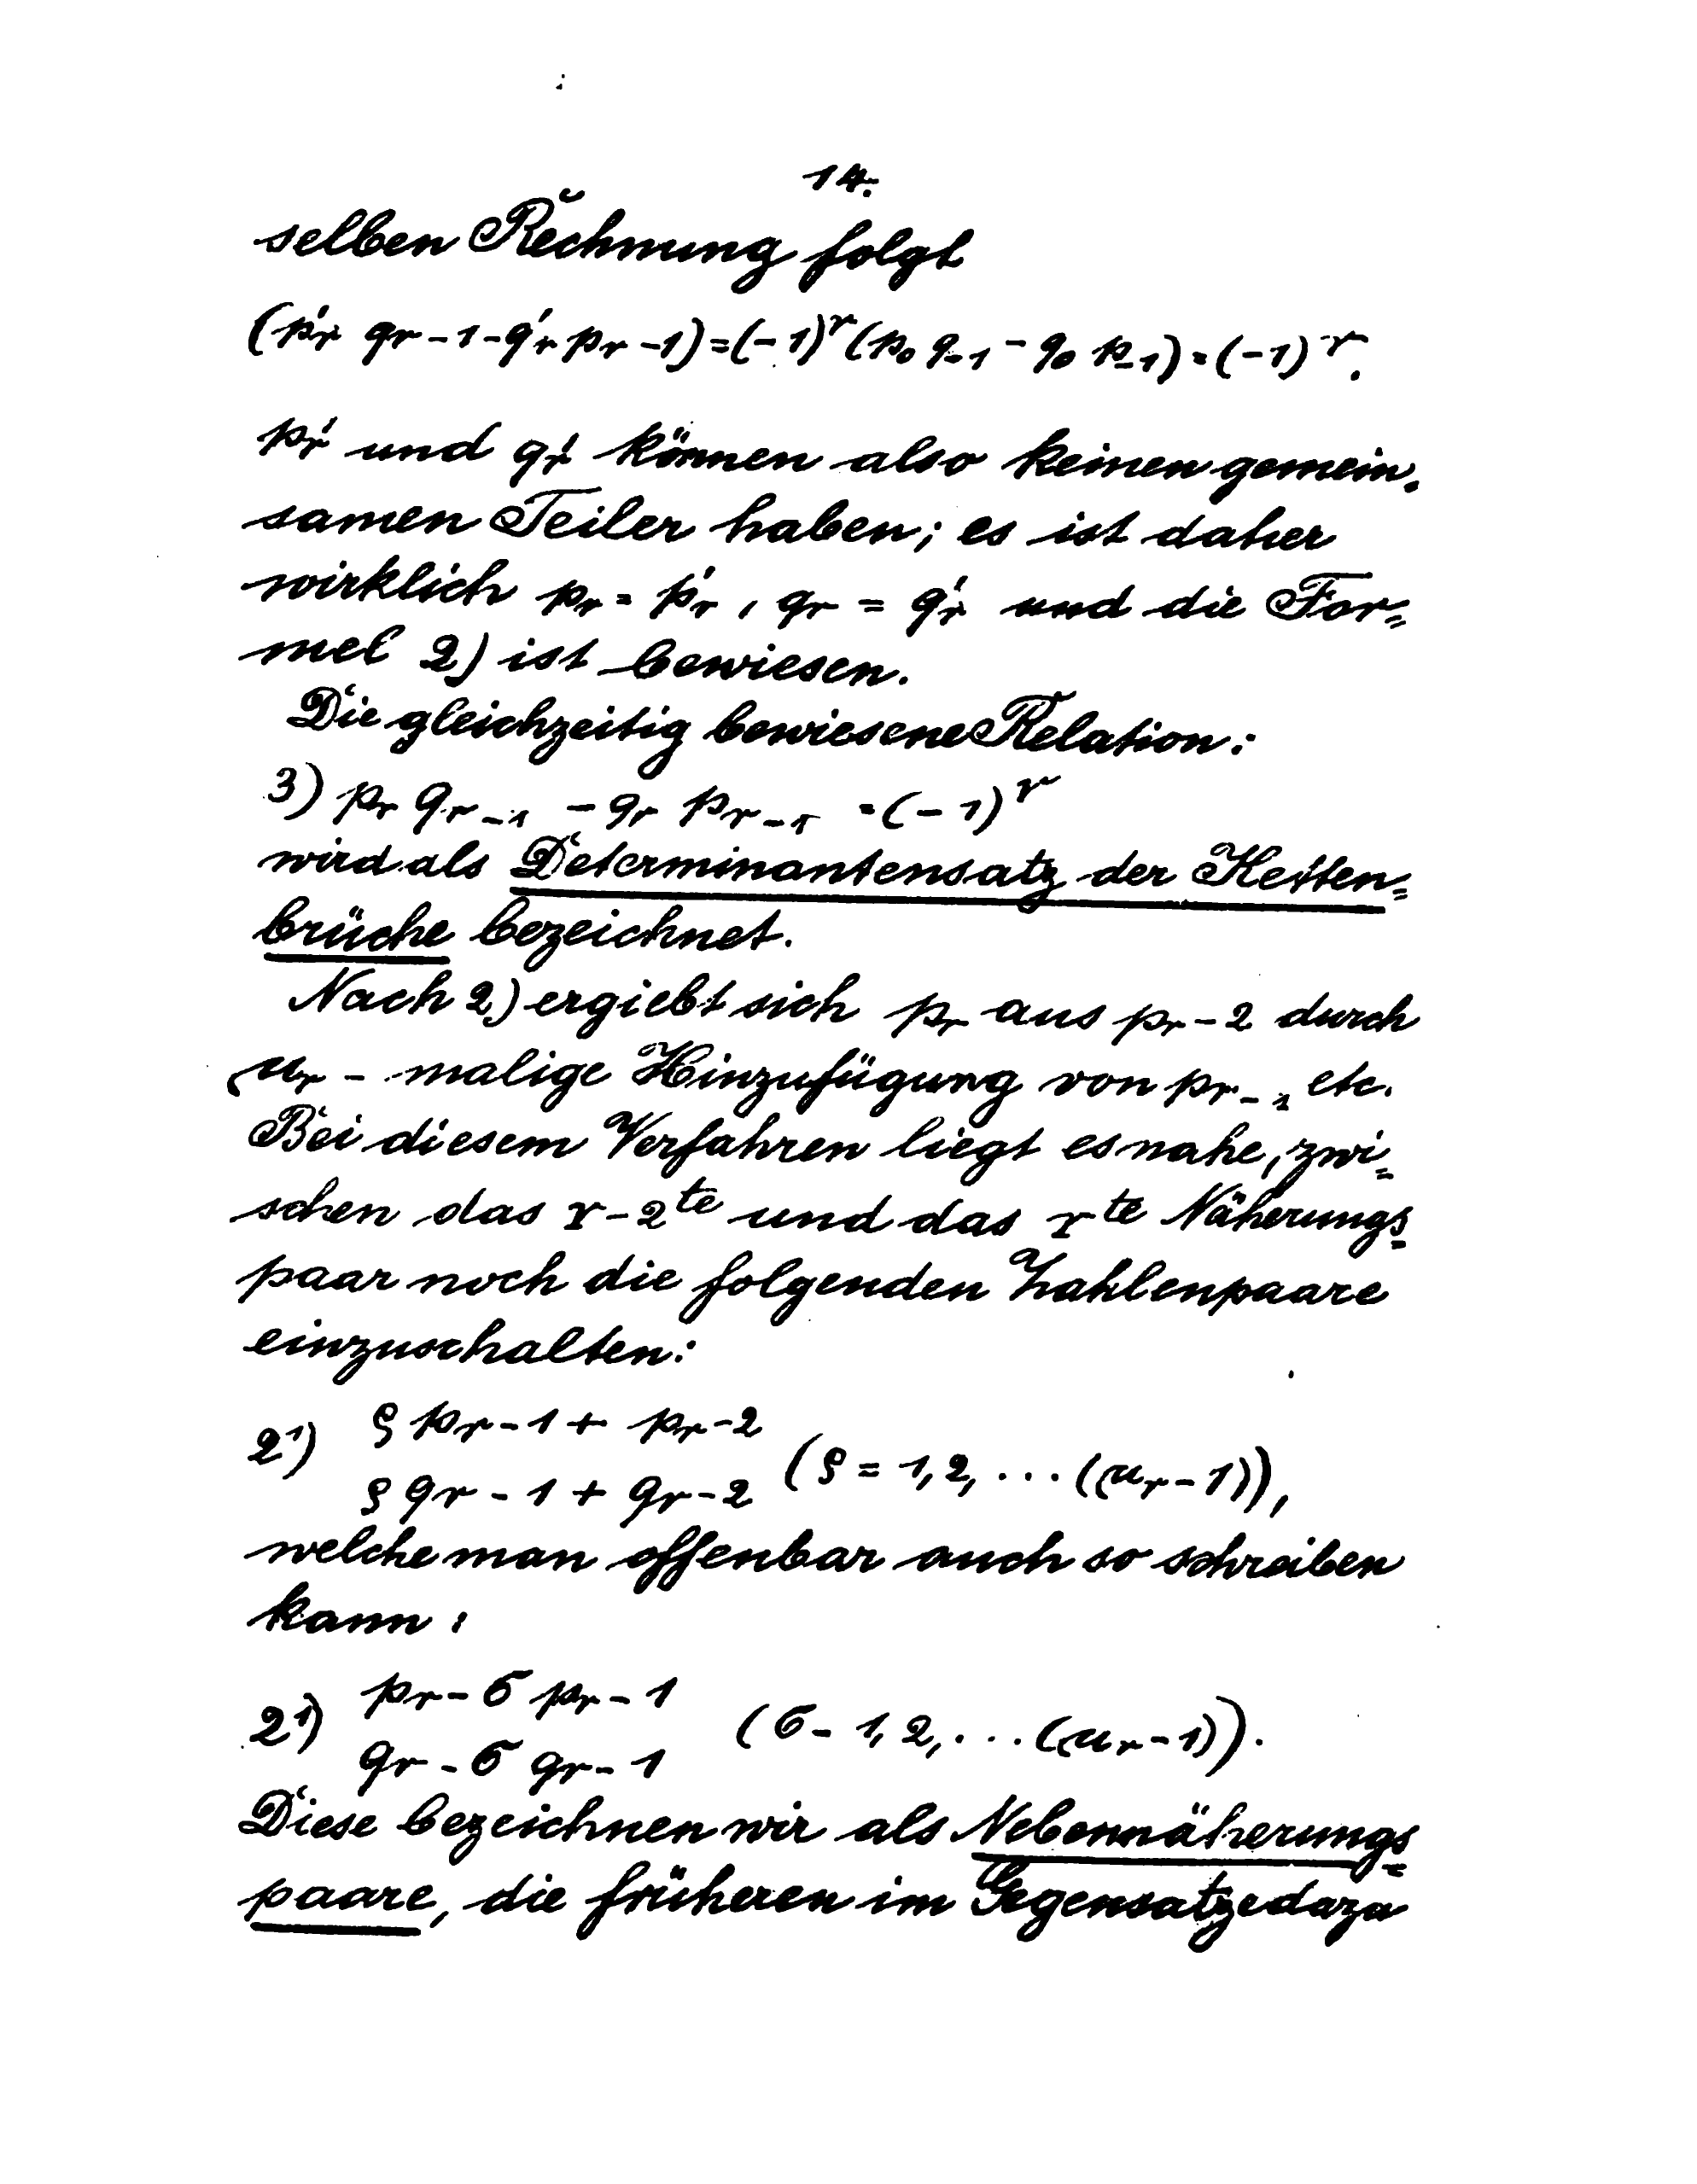 14.
selben Rechnung folgt
(p'r qr-1-q'r pr-1)=(-1)^r(p₀ q₋₁ - q₀ p₋₁)=(-1)^r.
p'r und q'r können also keinen gemein-
samen Teiler haben; es ist daher
wirklich pr = p'r, qr = q'r und die For=
mel 2) ist bewiesen.
Die gleichzeitig bewiesene Relation:
3) pr qr-1 - qr pr-1 = (-1)^r
wird als Determinantensatz der Ketten=
brüche bezeichnet.
Nach 2) ergiebt sich pr aus pr-2 durch
μr - malige Hinzufügung von pr-1 etc.
Bei diesem Verfahren liegt es nahe, zwi=
schen das r-2te und das rte Näherungs=
paar noch die folgenden Zahlenpaare
einzuschalten:
2') ϱ pr-1 + pr-2
ϱ qr-1 + qr-2 (ϱ = 1,2, ... (μr-1)),
welche man offenbar auch so schreiben
kann:
2') pr - σ pr-1
qr - σ qr-1 (σ - 1, 2, ... (μr-1)).
Diese bezeichnen wir als Nebennäherungs=
paare, die früheren im Gegensatze dazu